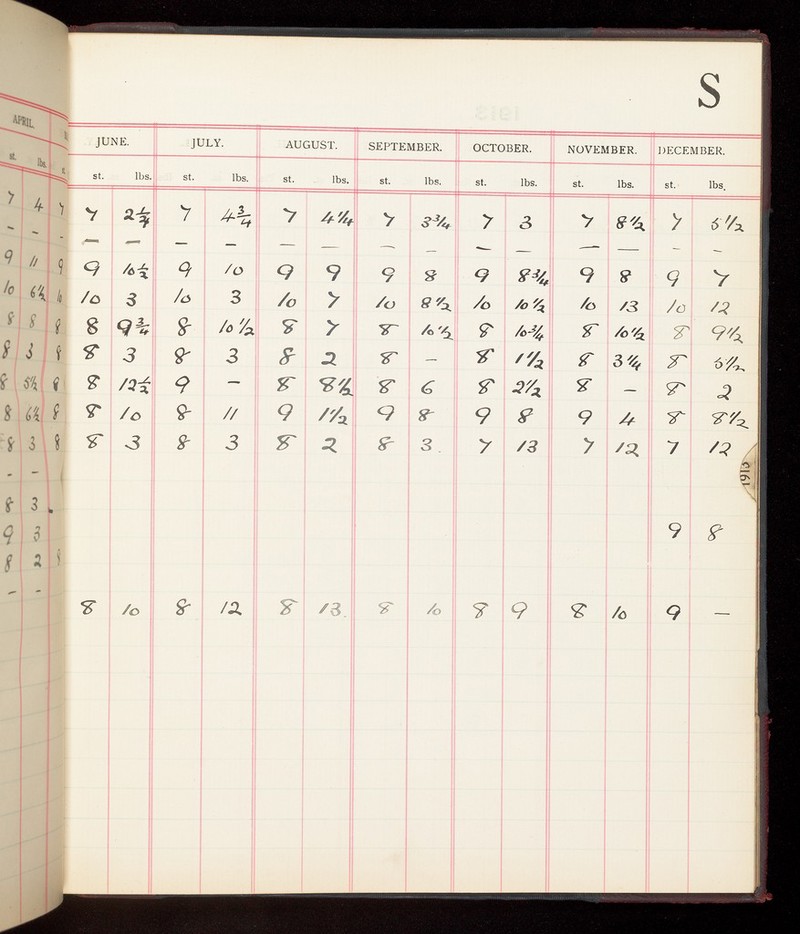 S
APRIL.
JUNE. JULY. AUGUST. SEPTEMBER. OCTOBER. NOVEMBER. DECEMBER.
st. lbs. st. st. lbs. st. lbs. st. lbs. st. lbs. st. lbs. st. lbs. st. lbs.
7 4 7 7 7 4¾ 7 4¼ 7 3¾ 7 3 7 8½ 7 5½
– – – — — — — — — — — — — — — – –
9 11 9 9 10½ 9 10 9 9 9 8 9 8¾ 9 8 9 7
10 6½ 10 3 10 3 10 7 10 8½ 10 10½ 10 13 10 12
8 8 8 8 9¾ 8 10½ 8 7 8 10½ 8 10¾ 8 10½ 8 9½
8 3 8 8 3 8 3 8 2 8 – 8 1½ 8 3¼ 8 5½
8 5½ 8 8 12½ 9 – 8 8½ 8 6 8 2½ 8 – 8 2
8 6½ 8 8 10 8 11 9 1½ 9 8 9 8 9 4 8 8½
8 3 8 8 3 8 3 8 2 8 3. 7 13 7 12 7 12
– –
8 3
9 3 9 8
8 2 8
– –
8 10 8 12 8 13. 8 10 8 9 8 10 9 —
1913